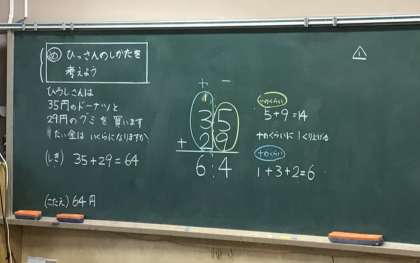 め
ひっさんのしかたを
考えよう
ひろしさんは
35円のドーナツと
29円のグミを買います
だい金はいくらになりますか
(しき) 35+29=64
(こたえ) 64円
十 一
1
35
+29
64
一のくらい
5+9=14
十のくらいに1くり上げる
十のくらい
1+3+2=6